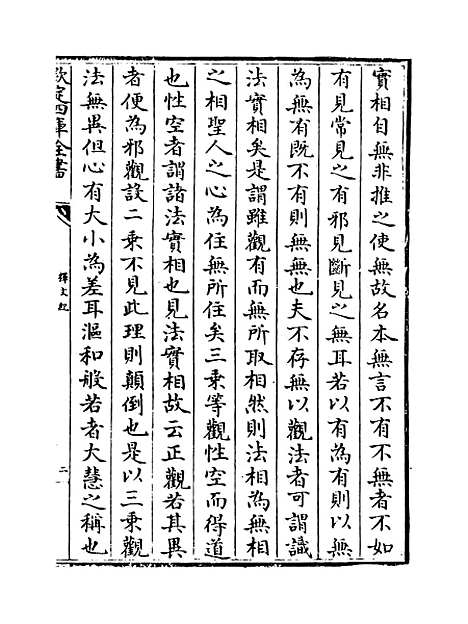 實相自無非推之使無故名本無言不有不無者不如
有見常見之有邪見斷見之無耳若以有為有則以無
為無有既不有則無無也夫不存無以觀法者可謂識
法實相矣是謂雖觀有而無所取相然則法相為無相
之相聖人之心為住無所住矣三乗等觀性空而得道
也性空者謂諸法實相也見法實相故云正觀若其異
者便為邪觀設二乗不見此理則顛倒也是以三乗觀
法無異但心有大小為差耳漚和般若者大慧之稱也
欽定四庫全書
釋文紀
二